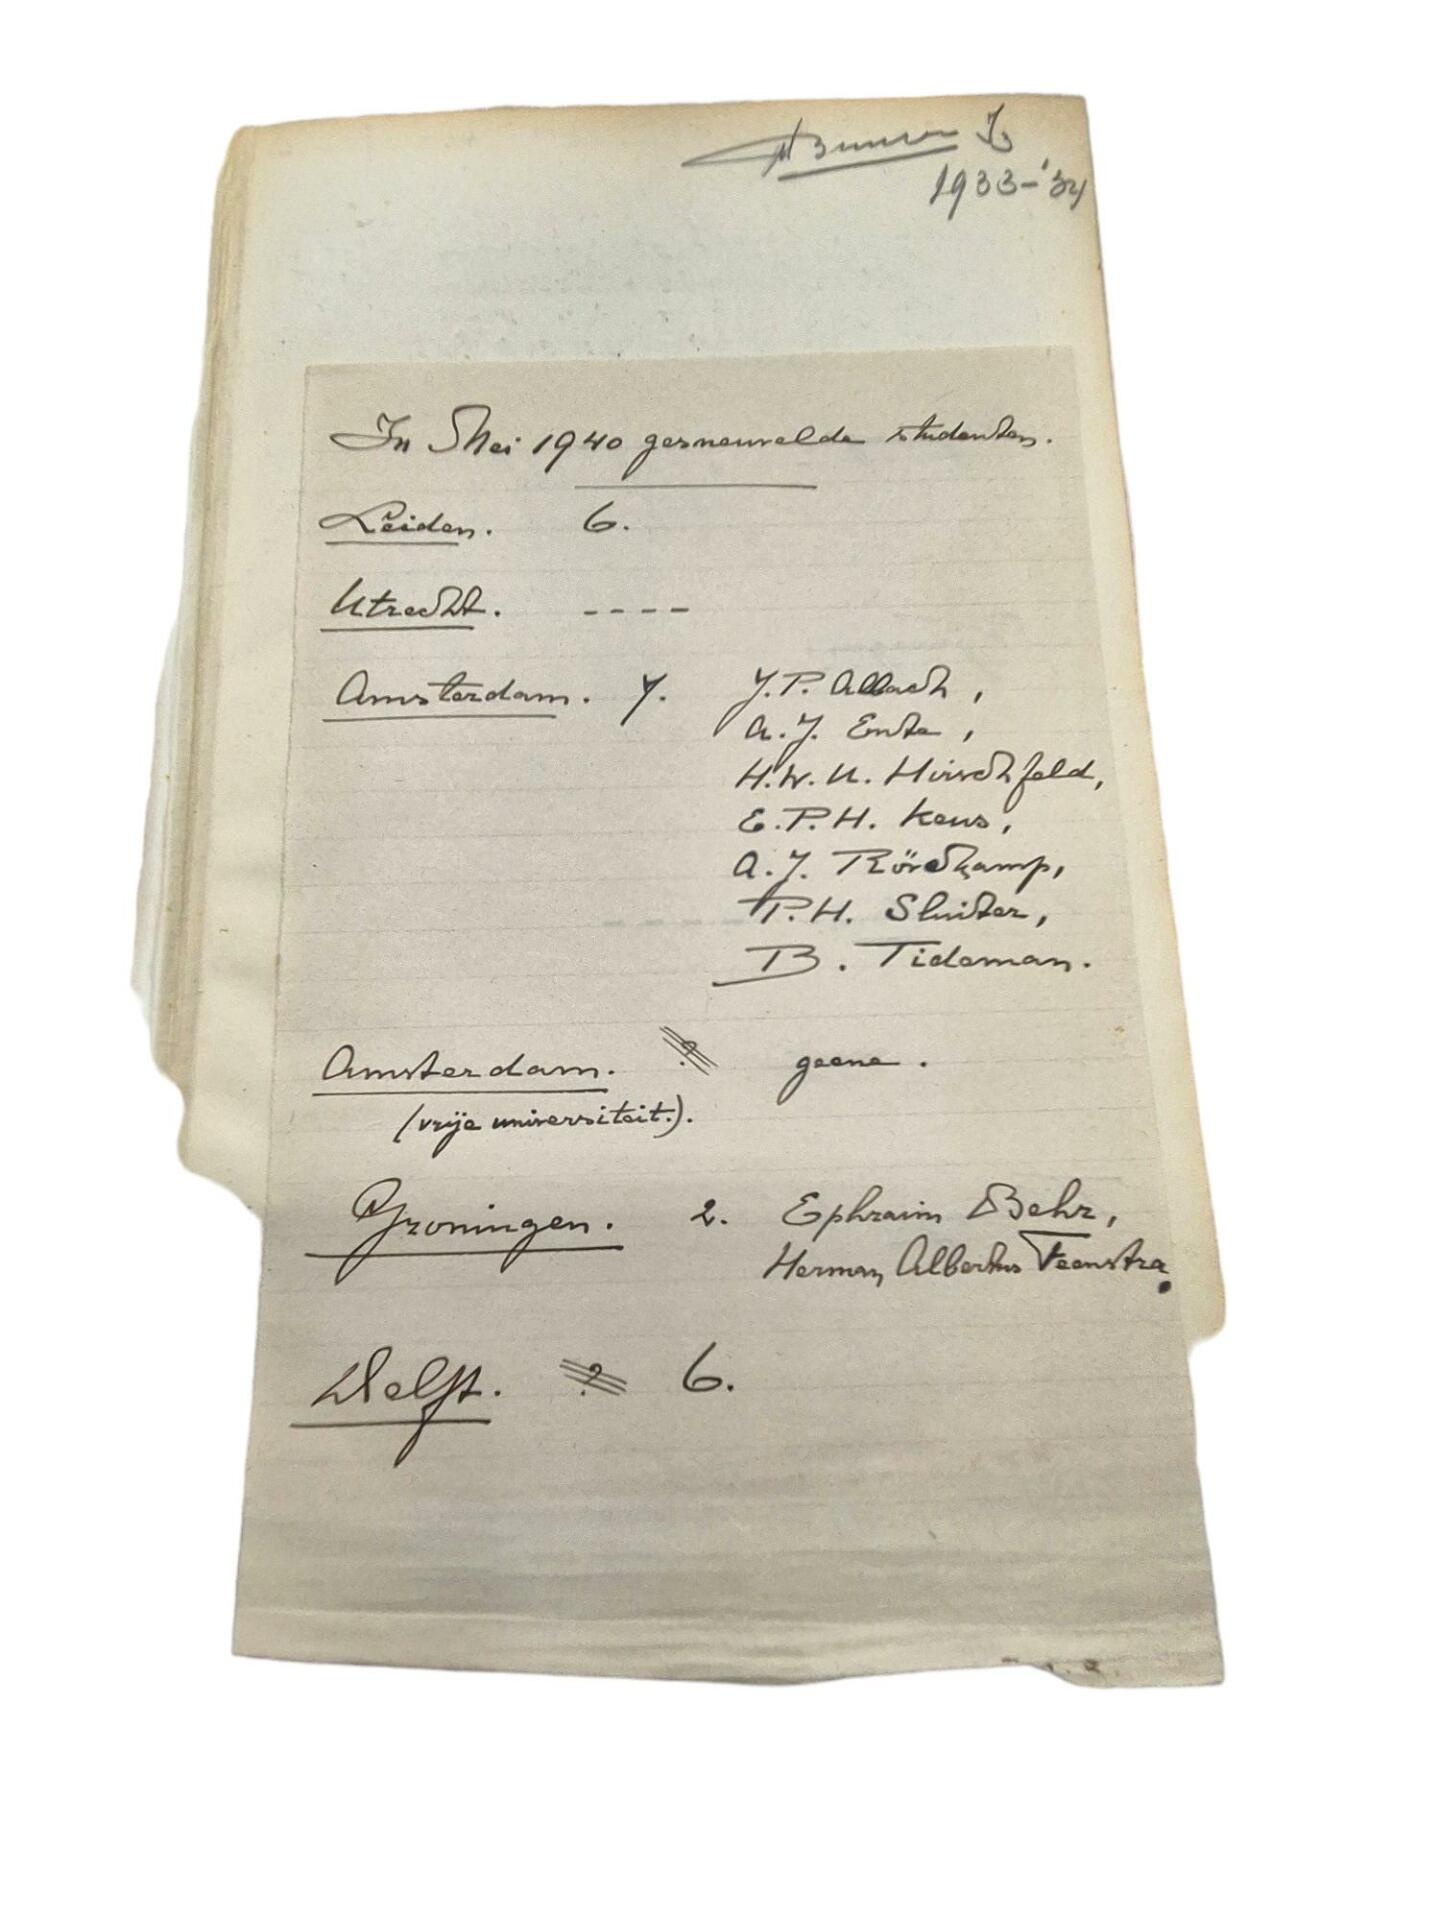 1933-'34
In Mei 1940 gesneuvelde studenten.
Leiden. 6.
Utrecht. ----
Amsterdam. 7. J.P. Allach,
A.J. Ente,
H.W.U. Hirschfeld,
E.P.H. Keus,
A.J. Röredkamp,
P.H. Sluiter,
B. Tideman.
Amsterdam. ? geene.
(vrije universiteit.).
Groningen. 2. Ephraim Behr,
Herman Albertus Feenstra.
Delft. ? 6.